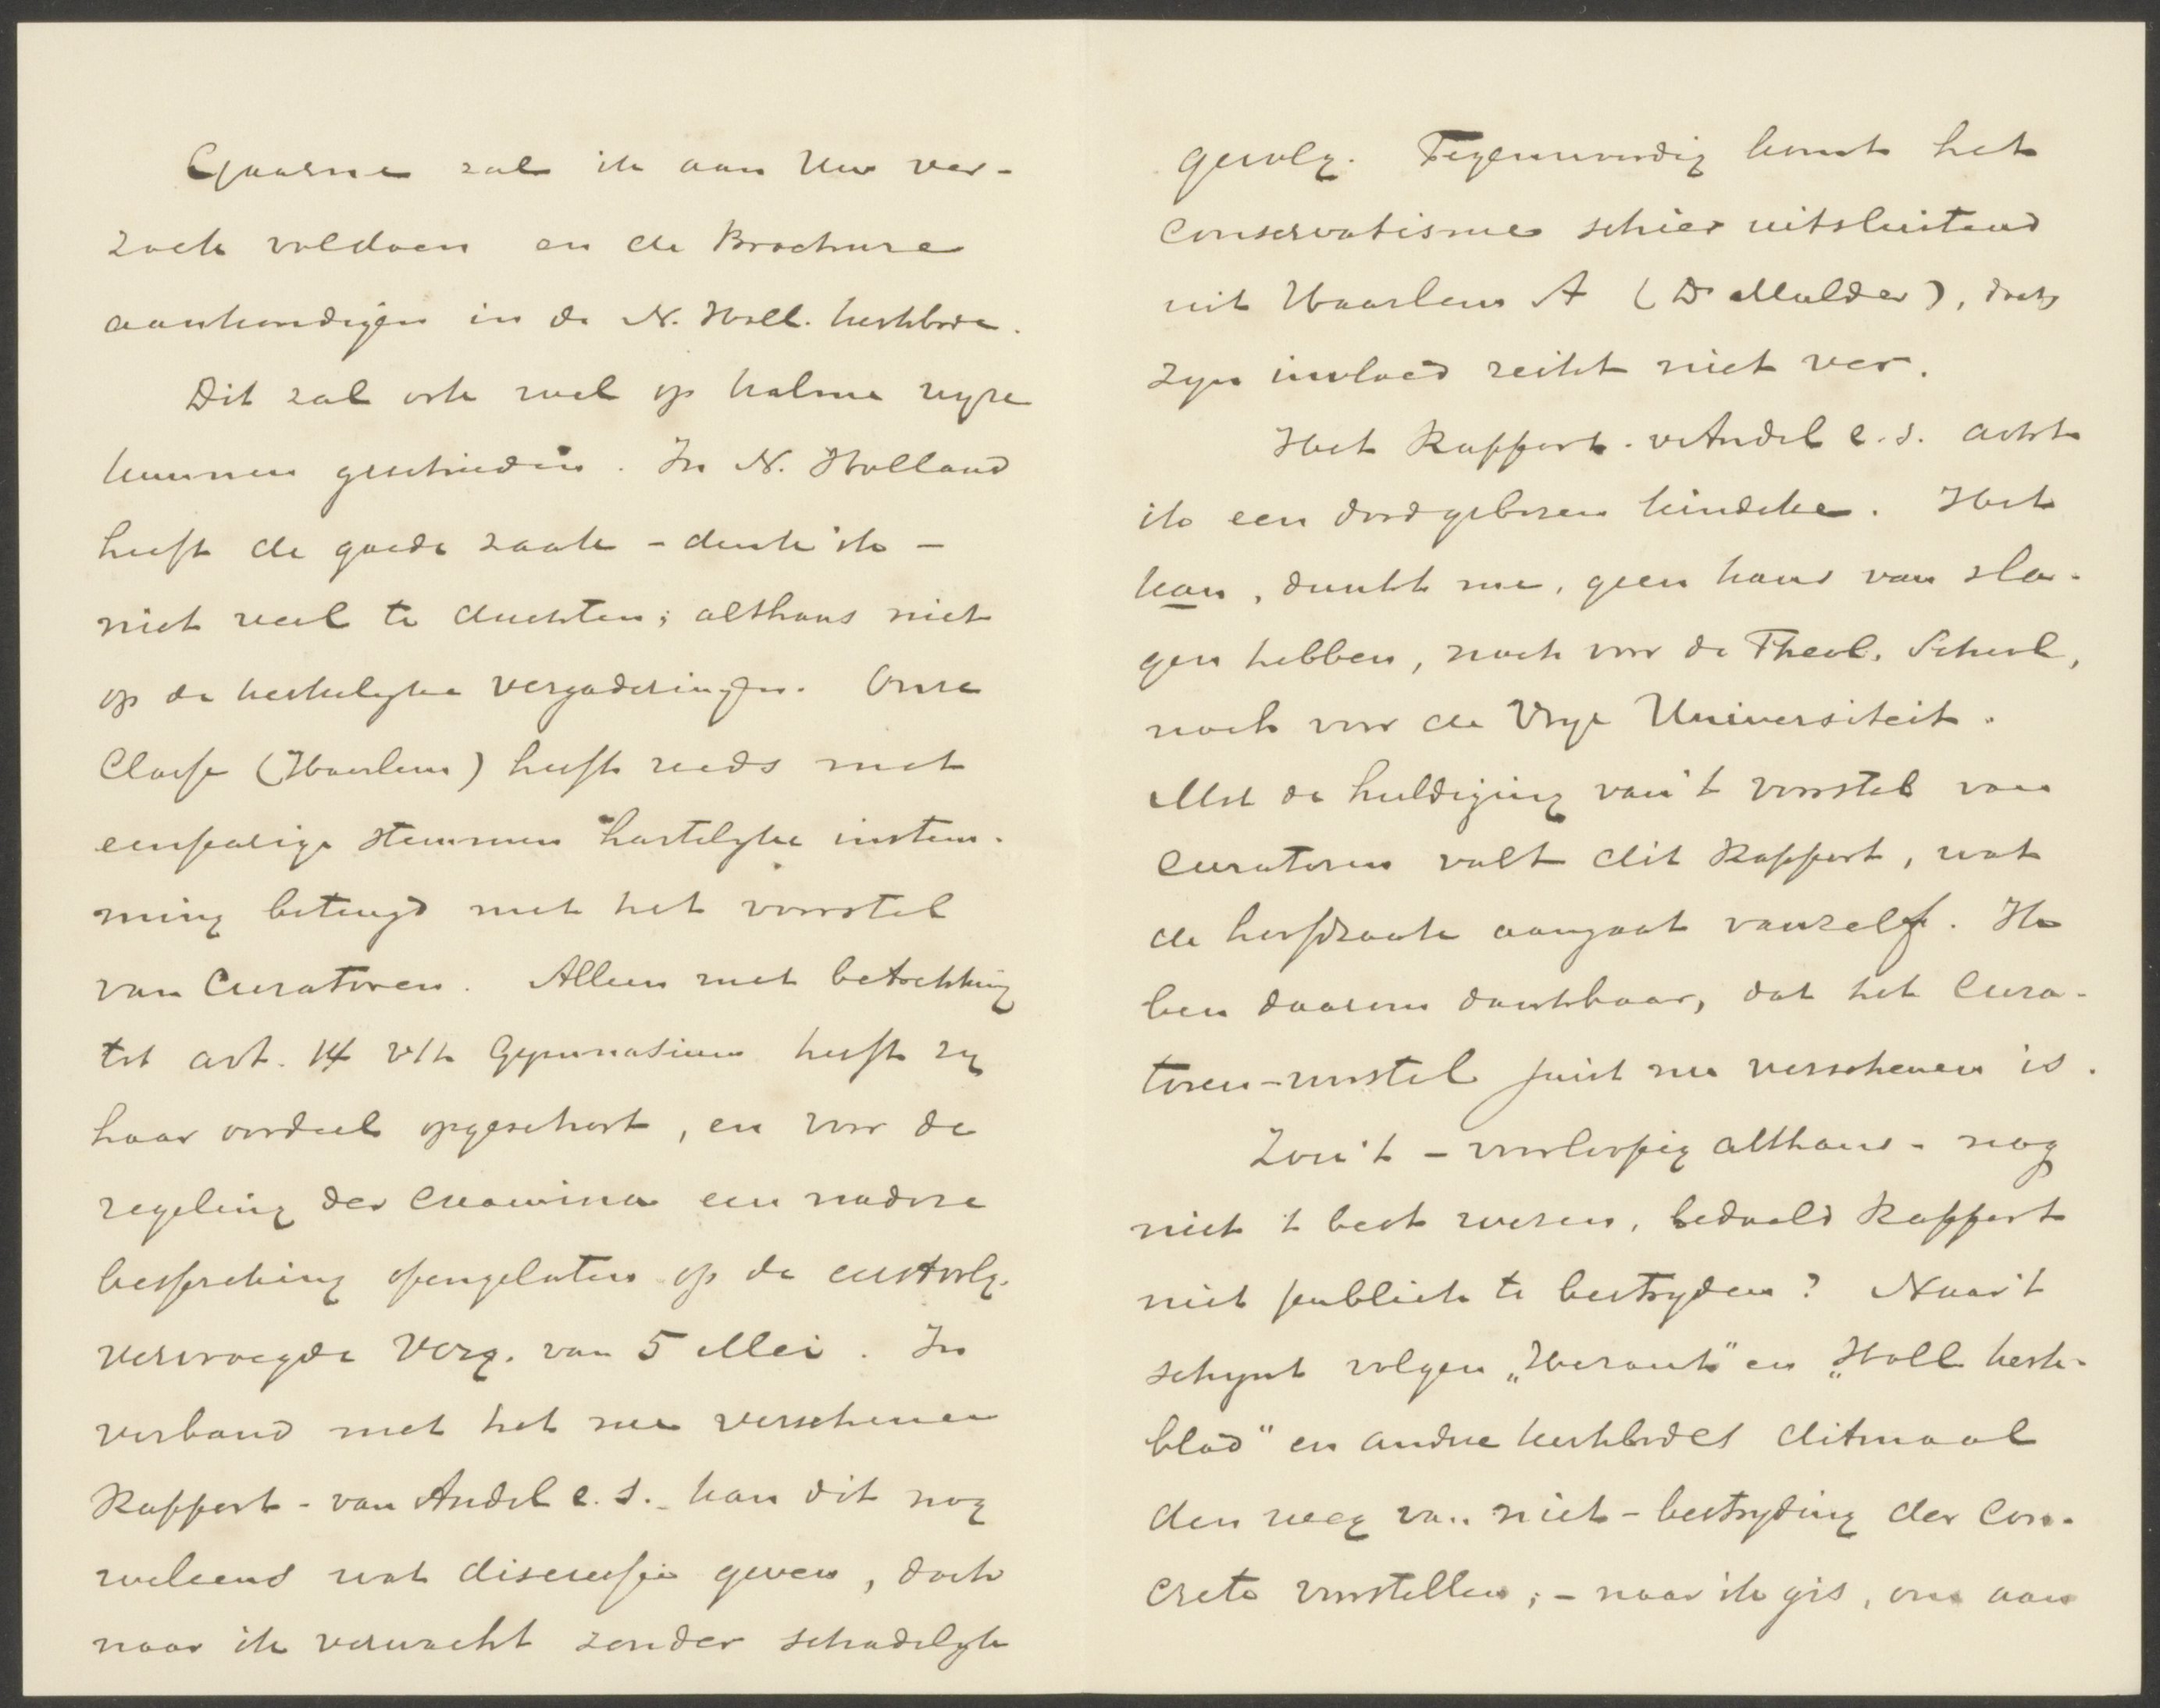 Gaarne zal ik aan Uw ver-
zoek voldoen en de Brochure
aankondigen in de N. Holl. kerkbode.
Dit zal ook wel op kalme wyze
kunnen geschieden. In N. Holland
heeft de goede zaak – denk ik –
niet veel te duchten; althans niet
op de kerkelyke vergaderingen. Onze
Classe (Haarlem) heeft reeds met
eenparige stemmen hartelyke instem-
ming betuigd met het voorstel
van Curatoren. Alleen met betrekking
tot art. 14 v/h Gymnasium heeft zy
haar oordeel opgeschort, en voor de
regeling der examina een nadere
bespreking opengelaten op de eerstvolg.
vervroegde Verg. van 5 Mei. In
verband met het nu verschenen
Rapport - van Andel c.s. - kan dit nog
weleens wat discussie geven, doch
naar ik verwacht zonder schadelyk
gevolg. Tegenwoordig komt het
conservatisme schier uitsluitend
uit Haarlem A (Dr Mulder), doch
zyn invloed reikt niet ver.
Het Rapport - v Andel c.s. acht
ik een doodgeboren kindeke. Het
kan, dunkt me, geen kans van sla-
gen hebben, noch voor de Theol. School,
noch voor de Vrye Universiteit.
Met de huldiging van 't voorstel van
Curatoren valt dit Rapport, wat
de hoofdzaak aangaat vanzelf. Ik
ben daarom dankbaar, dat het Cura-
toren-voorstel juist nu verschenen is.
Zou 't – voorloopig althans – nog
niet 't best wezen, bedoeld Rapport
niet publiek te bestryden? Naar 't
schynt volgen „Heraut" en „Holl kerk-
blad" en andere kerkbodes ditmaal
den weg van niet-bestryding der con-
crete voorstellen; – naar ik gis, om aan